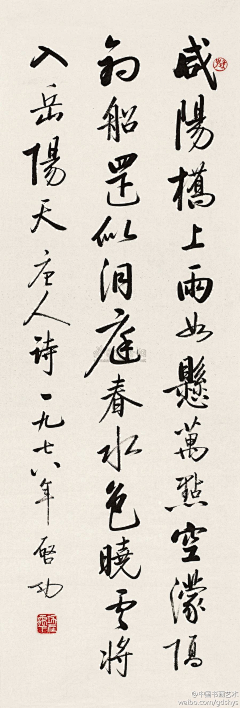 咸陽橋上雨如懸萬點空濛隔
釣船還似洞庭春水色曉雲將
入岳陽天唐人詩一九七八年啓功
@中国书画艺术
weibo.com/gdshys